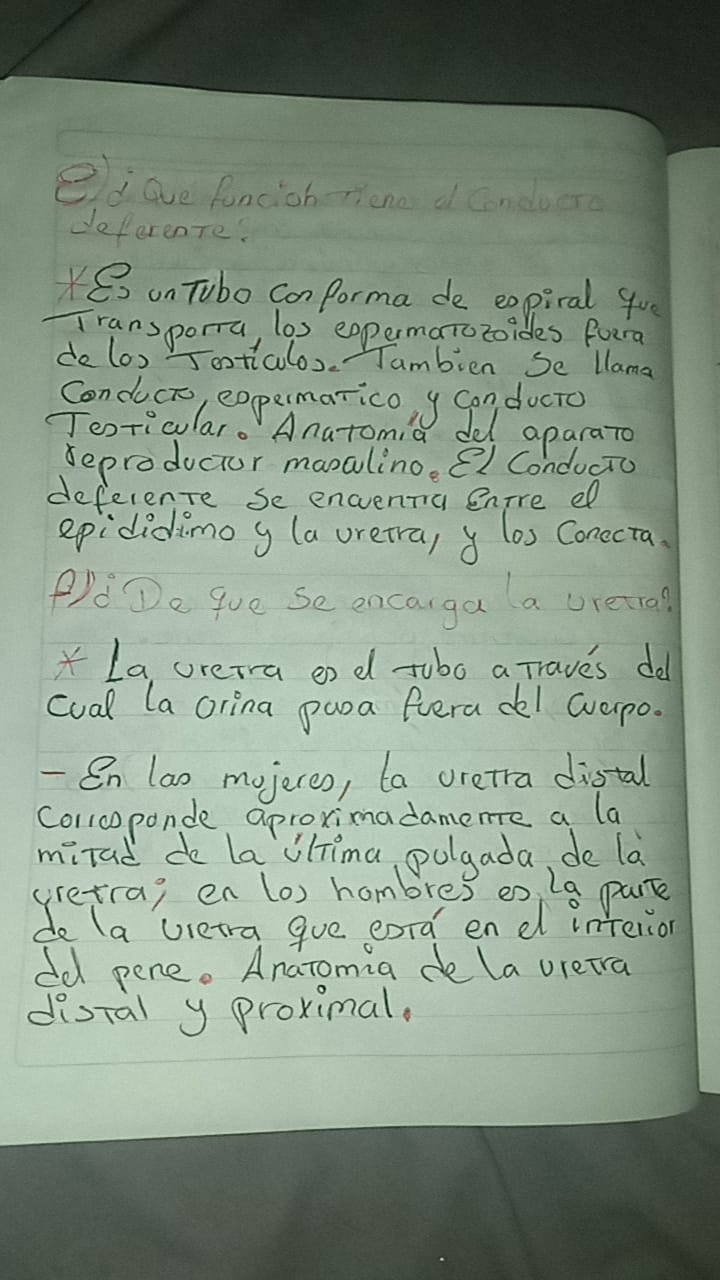 e) ¿Que función tiene el Conducto
deferente?
* Es un Tubo con forma de espiral que
Transporta, los espermatozoides fuera
de los Testículos. Tambien se llama
Conducto, espermatico, y Conducto
Testicular. Anatomía del aparato
reproductor masculino. El Conducto
deferente se encuentra Entre el
epididimo y la uretra, y los Conecta.
f) ¿De que se encarga la uretra?
* La uretra es el tubo a Través del
cual la orina pasa fuera del Cuerpo.
- En las mujeres, la uretra distal
Corresponde aproximadamente a la
mitad de la última pulgada de la
uretra; en los hombres es la parte
de la uretra que está en el interior
del pene. Anatomia de la uretra
distal y proximal.